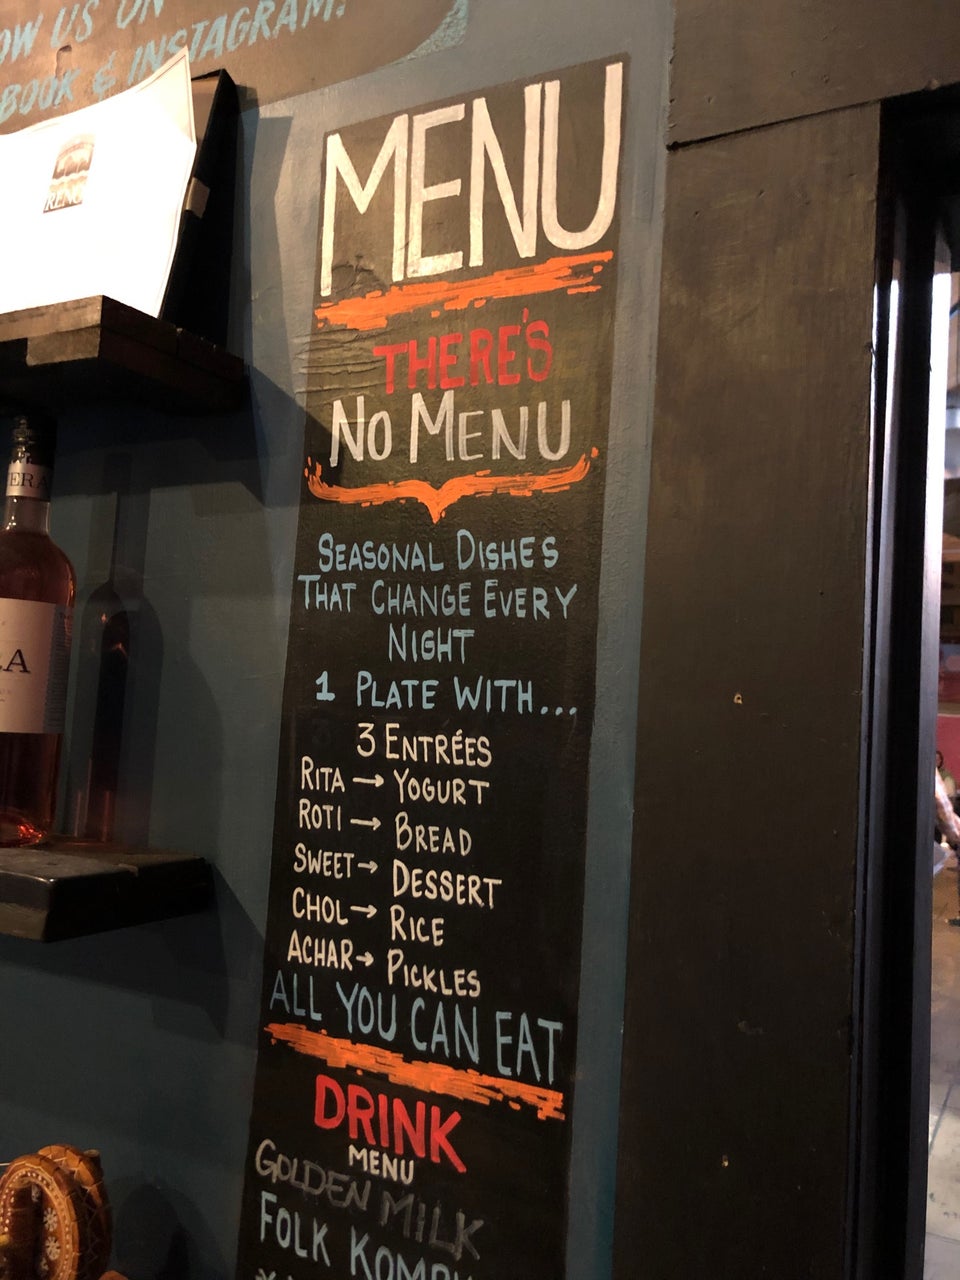 OW US ON
BOOK & INSTAGRAM!
MENU
THERE'S
NO MENU
SEASONAL DISHES
THAT CHANGE EVERY
NIGHT
1 PLATE WITH...
3 ENTRÉES
RITA → YOGURT
ROTI → BREAD
SWEET → DESSERT
CHOL → RICE
ACHAR → PICKLES
ALL YOU CAN EAT
DRINK
MENU
GOLDEN MILK
FOLK KOMBU
ERA
RA